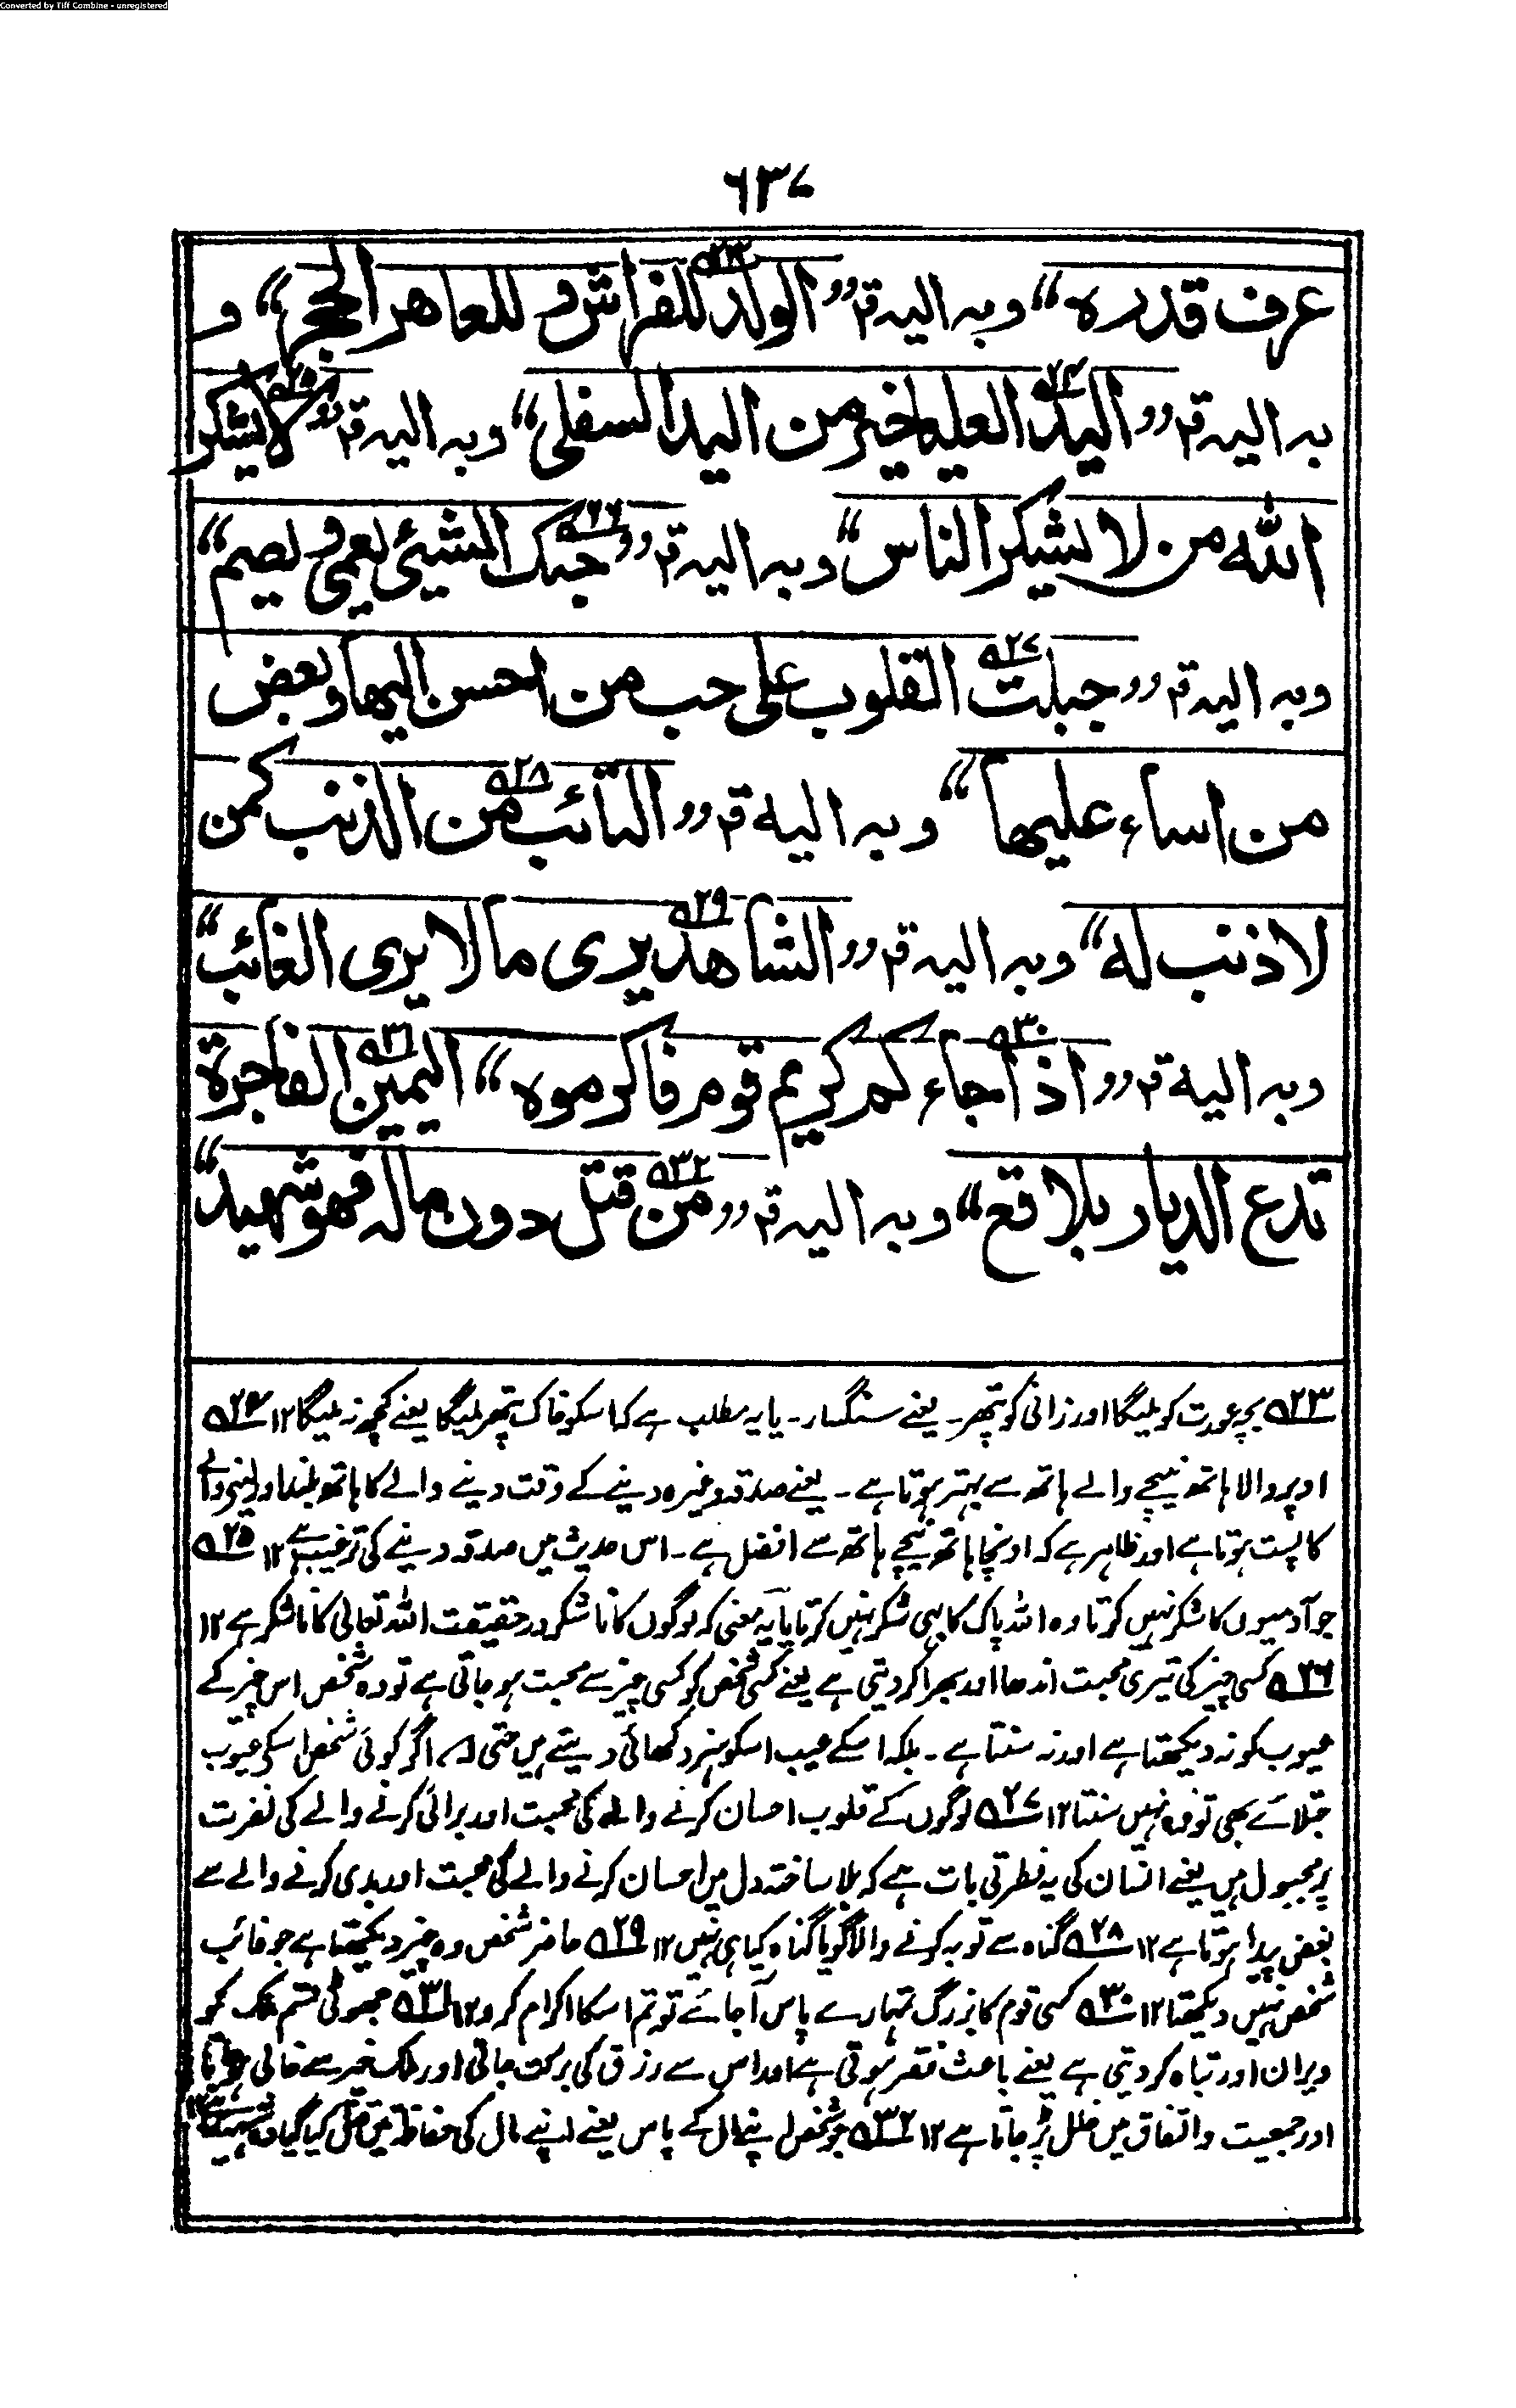 Converted by Tiff Combine - unregistered
٦٣٧
عرف قدره“ وبہ الیہ قٓ ”الولد ۵۲۳ للفراش و للعاهر الحجر“ و
بہ الیہ قٓ ”الید ۵۲۴ العلیا خیر من الید السفلی“ وبہ الیہ قٓ ”لا ۵۲۵ یشکر
اللّٰہ من لا یشکر الناس“ وبہ الیہ قٓ ”حبک ۵۲۶ الشیئ یعمی و یصم“
وبہ الیہ قٓ ”جبلت ۵۲۷ القلوب علی حب من احسن الیها و بعض
من اساء علیها“ وبہ الیہ قٓ ”التائب ۵۲۸ من الذنب کمن
لا ذنب لہ“ وبہ الیہ قٓ ”الشاهد ۵۲۹ یری ما لا یری الغائب“
وبہ الیہ قٓ ”اذا ۵۳۰ جاءکم کریم قوم فاکرموہ“ الیمین ۵۳۱ الفاجرة
تدع الدیار بلاقع“ وبہ الیہ قٓ ”من ۵۳۲ قتل دون مالہ فهو شهید“
۵۲۳ بچہ عورت کو ملیگا اور زانی کو پتھر۔ یعنے سنگسار۔ یا یہ مطلب ہے کہ اسکو خاک پتھر ملیگا یعنے کچھ نہ ملیگا ۱۲ ۵۲۴
اوپر والا ہاتھ نیچے والے ہاتھ سے بہتر ہوتا ہے۔ یعنے صدقہ وغیرہ دینے کے وقت دینے والے کا ہاتھ بلند اور لینے والے
کا پست ہوتا ہے اور ظاہر ہے کہ اونچا ہاتھ نیچے ہاتھ سے افضل ہے۔ اس حدیث میں صدقہ دینے کی ترغیب ہے ۱۲ ۵۲۵
جو آدمیوں کا شکر نہیں کرتا وہ اللہ پاک کا بھی شکر نہیں کرتا یا یہ معنی کہ لوگوں کا ناشکر درحقیقت اللہ تعالی کا ناشکر ہے ۱۲
۵۲۶ کسی چیز کی تیری محبت اندھا اور بہرا کر دیتی ہے یعنے کسی شخص کو کسی چیز سے محبت ہو جاتی ہے تو وہ شخص اس چیز کے
عیوب کو نہ دیکھتا ہے اور نہ سنتا ہے۔ بلکہ اسکے عیب اسکو ہنر دکھائی دیتے ہیں حتی کہ اگر کوئی شخص اسکی عیوب
جتلائے بھی تو وہ نہیں سنتا ۱۲ ۵۲۷ لوگوں کے قلوب احسان کرنے والے کی محبت اور برائی کرنے والے کی نفرت
پر مجبول ہیں یعنے انسان کی یہ فطرتی بات ہے کہ بلا ساختہ دل میں احسان کرنے والے کی محبت اور بدی کرنے والے سے
بغض پیدا ہوتا ہے ۱۲ ۵۲۸ گناہ سے توبہ کرنے والا گویا گناہ کیا ہی نہیں ۱۲ ۵۲۹ حاضر شخص وہ چیز دیکھتا ہے جو غائب
شخص نہیں دیکھتا ۱۲ ۵۳۰ کسی قوم کا بزرگ تمہارے پاس آ جائے تو تم اسکا اکرام کرو ۱۲ ۵۳۱ جھوٹی قسم ملک کو
ویران اور تباہ کر دیتی ہے یعنے باعث فقر ہوتی ہے اور اس سے رزق کی برکت جاتی اور ملک خیر سے خالی ہو جاتا
اور جمعیت و اتفاق میں خلل پڑ جاتا ہے ۱۲ ۵۳۲ جو شخص اپنے مال کے پاس یعنے اپنے مال کی حفاظت میں قتل کیا گیا وہ شہید ہے ۱۲